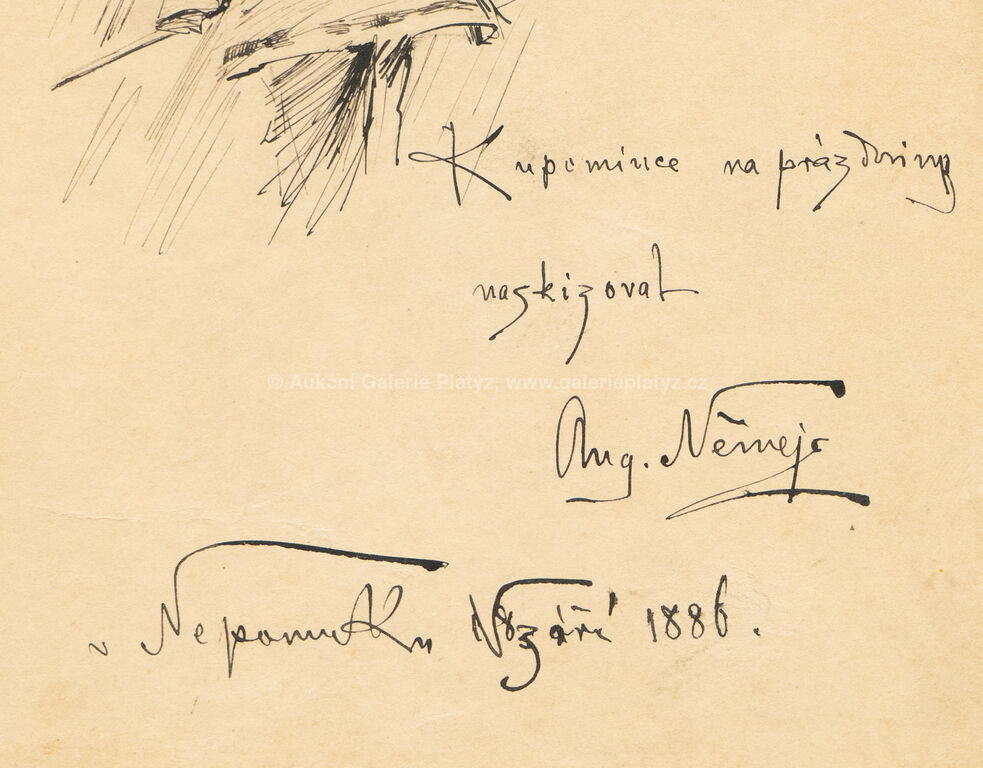 K upomince na prázdniny
naskizoval
© Aukční Galerie Platýz, www.galerieplatyz.cz
Aug. Němejc
v Nepomuku září 1886.